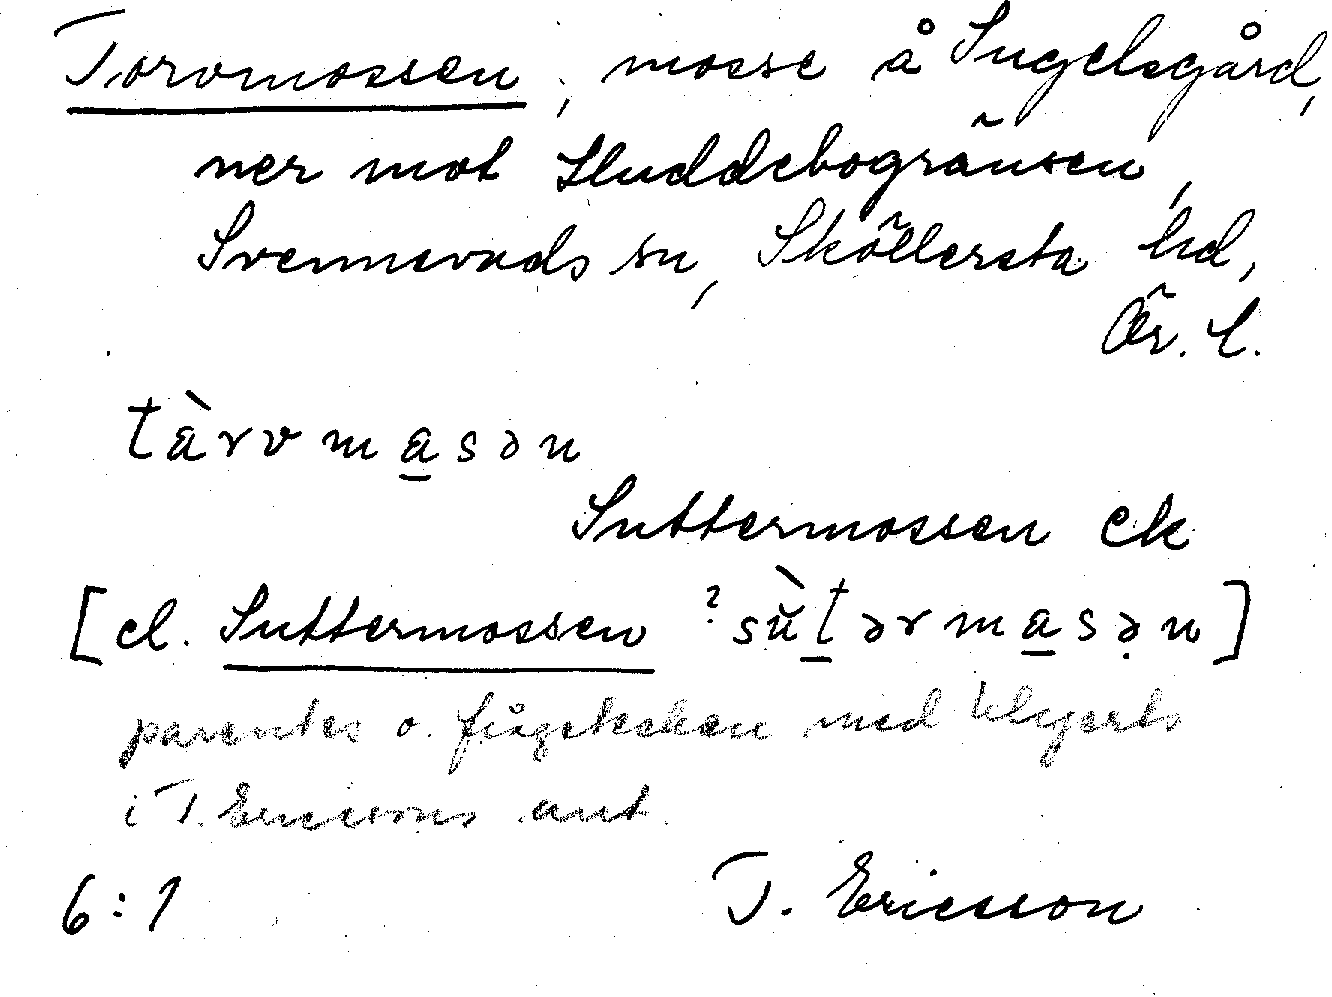 Torvmossen, mosse å Ingelsgård,
ner mot Sluddebogränsen,
Svennevads sn, Sköllersta hd,
Ör. l.
tàrvmasən
Suttermossen ek
[el. Suttermossen ? sùtərmasən]
parentes o. frågetecken med blyerts
i T. Ericssons ant.
6:1 T. Ericsson